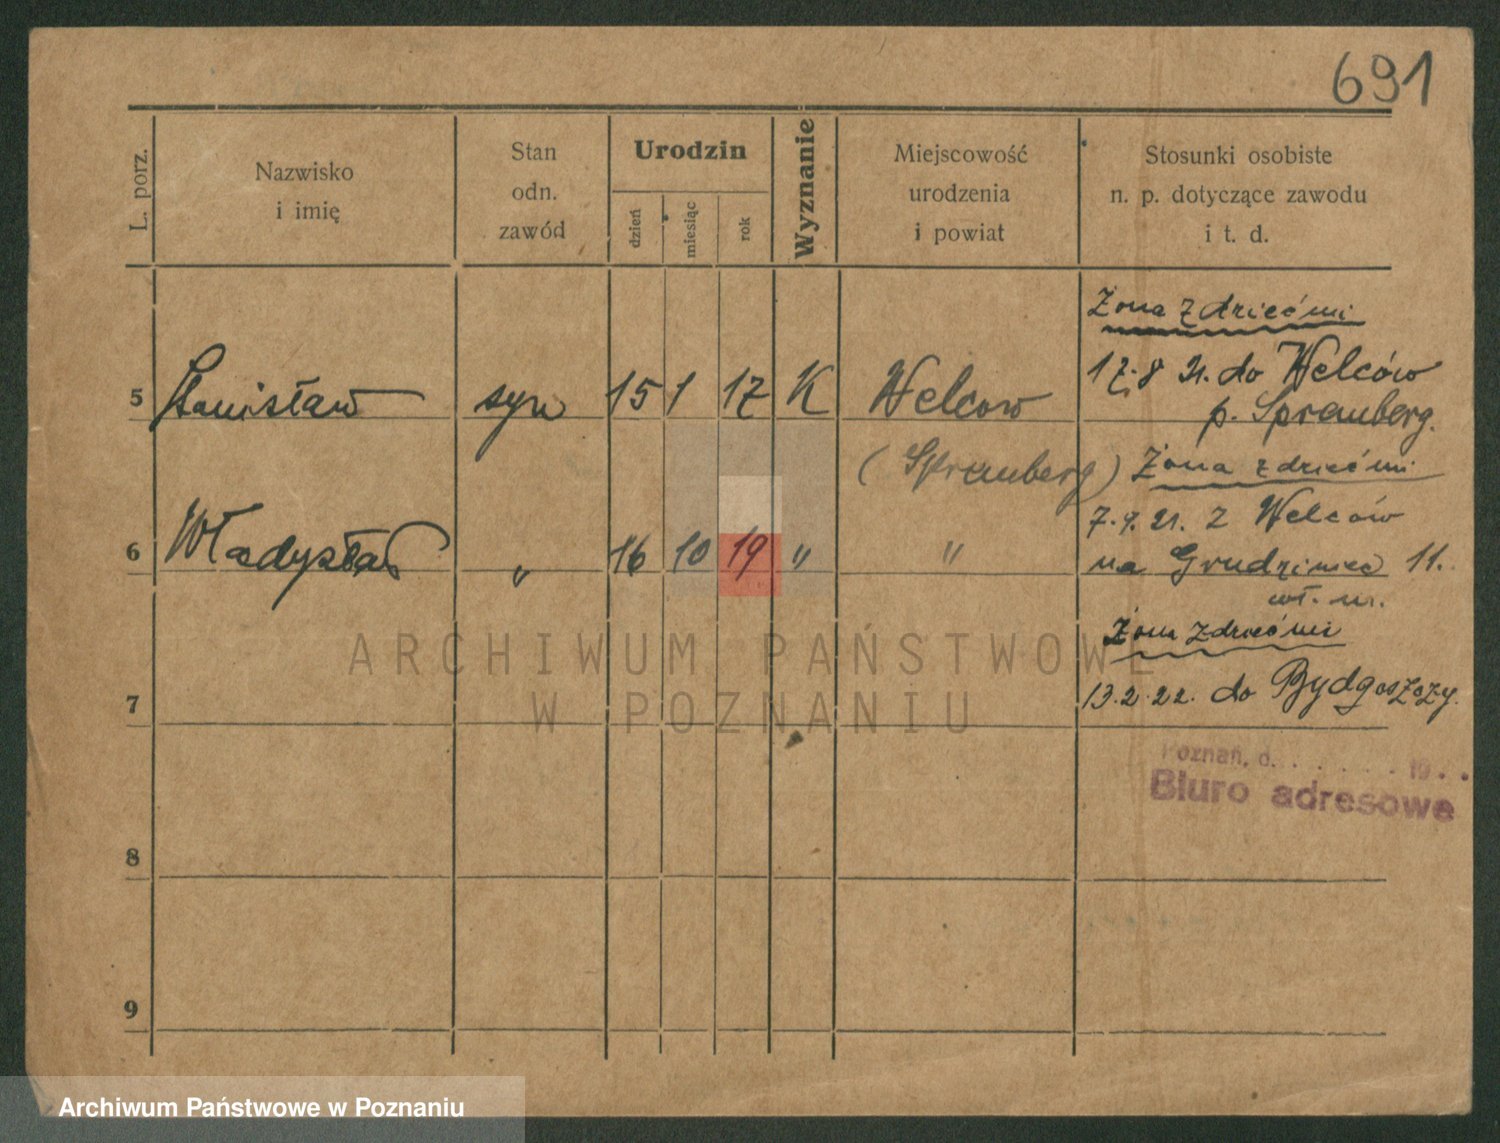 691
L. porz.
Nazwisko
i imię
Stan
odn.
zawód
Urodzin
dzień
miesiąc
rok
Wyznanie
Miejscowość
urodzenia
i powiat
Stosunki osobiste
n. p. dotyczące zawodu
i t. d.
Żona z dziećmi
5 Stanisław syn 15 1 17 K Welcow
17.8 21. do Welców
p. Spremberg.
(Spremberg)
Żona z dziećmi
7.9.21. z Welców
6 Władysław " 16 10 19 " "
na Grudzieniec 11.
wł. m.
Żona z dziećmi
7
13.2.22. do Bydgoszczy.
ARCHIWUM PAŃSTWOWE
W POZNANIU
Poznań, d. . . . . . . 19 . .
Biuro adresowe
8
9
Archiwum Państwowe w Poznaniu